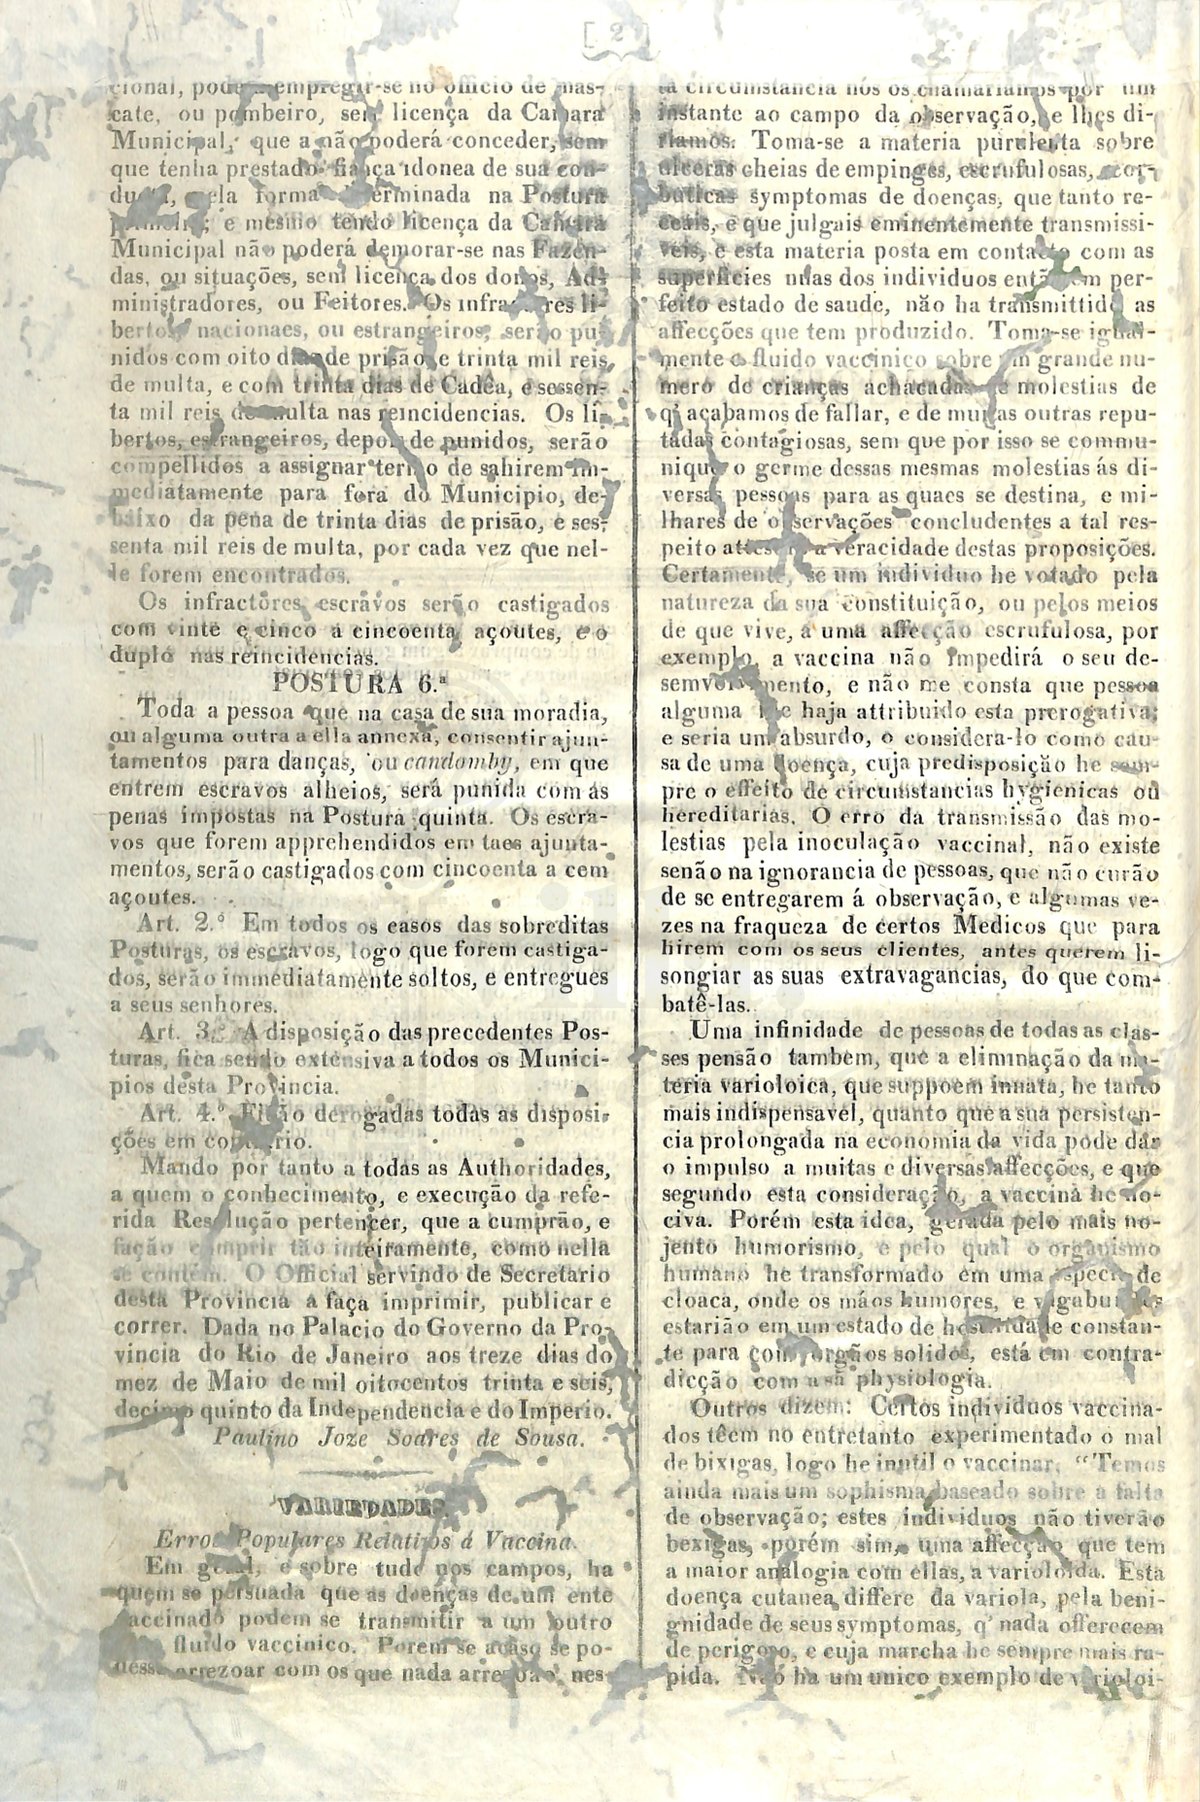 [ 2 ]
cional, empregar-se no officio de mas-
cate, ou pombeiro, sem licença da Camara
Municipal, que a não poderá conceder, sem
que tenha prestado fiança idonea de sua con-
pela forma determinada na Postura
e mesmo tendo licença da Camara
Municipal não poderá demorar-se nas Fazen-
das, ou situações, sem licença dos donos, Ad-
ministradores, ou Feitores. Os infractores li-
bertos, nacionaes, ou estrangeiros, serão pu-
nidos com oito dias de prisão, e trinta mil reis
de multa, e com trinta dias de Cadêa, e sessen-
ta mil reis de multa nas reincidencias. Os li-
bertos, estrangeiros, depois de punidos, serão
compellidos a assignar termo de sahirem im-
mediatamente para fora do Municipio, de-
baixo da pena de trinta dias de prisão, e ses-
senta mil reis de multa, por cada vez que nel-
le forem encontrados.
Os infractores escravos serão castigados
com vinte e cinco a cincoenta açoutes, e o
duplo nas reincidencias.
POSTURA 6.ª
Toda a pessoa que na casa de sua moradia,
ou alguma outra a ella annexa, consentir ajun-
tamentos para danças, ou candomby, em que
entrem escravos alheios, será punida com as
penas impostas na Postura quinta. Os escra-
vos que forem apprehendidos em taes ajunta-
mentos, serão castigados com cincoenta a cem
açoutes.
Art. 2.º Em todos os casos das sobreditas
Posturas, os escravos, logo que forem castiga-
dos, serão immediatamente soltos, e entregues
a seus senhores.
Art. 3.º A disposição das precedentes Pos-
turas, fica sendo extensiva a todos os Munici-
pios desta Provincia.
Art. 4.º Ficão derogadas todas as disposi-
ções em contrario.
Mando por tanto a todas as Authoridades,
a quem o conhecimento, e execução da refe-
rida Resolução pertencer, que a cumprão, e
fação cumprir tão inteiramente, como nella
se contém. O Official servindo de Secretario
desta Provincia a faça imprimir, publicar e
correr. Dada no Palacio do Governo da Pro-
vincia do Rio de Janeiro aos treze dias do
mez de Maio de mil oitocentos trinta e seis,
decimo quinto da Independencia e do Imperio.
Paulino Joze Soares de Sousa.
VARIEDADES.
Erros Populares Relativos á Vaccina.
Em geral, e sobre tudo nos campos, ha
quem se persuada que as doenças de um ente
vaccinado podem se transmitir a um outro
fluido vaccinico. Porem se acaso se po-
desse arrezoar com os que nada arrezoão nes-
ta circumstancia nós os chamariamos por um
instante ao campo da observação, e lhes di-
riamos: Toma-se a materia purulenta sobre
ulceras cheias de empinges, escrufulosas, scor-
buticas symptomas de doenças, que tanto re-
ceais, e que julgais eminentemente transmissi-
veis, e esta materia posta em contacto com as
superficies nuas dos individuos então em per-
feito estado de saude, não ha transmittido as
affecções que tem produzido. Toma-se igual-
mente o fluido vaccinico sobre um grande nu-
mero de crianças achacadas de molestias de
q' acabamos de fallar, e de muitas outras repu-
tadas contagiosas, sem que por isso se commu-
nique o germe dessas mesmas molestias ás di-
versas pessoas para as quaes se destina, e mi-
lhares de observações concludentes a tal res-
peito attestão a veracidade destas proposições.
Certamente, se um individuo he votado pela
natureza da sua constituição, ou pelos meios
de que vive, a uma affecção escrufulosa, por
exemplo, a vaccina não impedirá o seu de-
semvolvimento, e não me consta que pessoa
alguma lhe haja attribuido esta prerogativa;
e seria um absurdo, o considera-lo como cau-
sa de uma doença, cuja predisposição he sem-
pre o effeito de circumstancias hygienicas ou
hereditarias. O erro da transmissão das mo-
lestias pela inoculação vaccinal, não existe
senão na ignorancia de pessoas, que não curão
de se entregarem á observação, e algumas ve-
zes na fraqueza de certos Medicos que para
hirem com os seus clientes, antes querem li-
songiar as suas extravagancias, do que com-
batê-las.
Uma infinidade de pessoas de todas as clas-
ses pensão tambem, que a eliminação da ma-
teria varioloica, que suppoem innata, he tanto
mais indispensavel, quanto que a sua persisten-
cia prolongada na economia da vida pode dar
o impulso a muitas e diversas affecções, e que
segundo esta consideração, a vaccina he no-
civa. Porém esta idea, gerada pelo mais no-
jento humorismo, e pelo qual o organismo
humano he transformado em uma especie de
cloaca, onde os máos humores, e vagabundos
estarião em um estado de hostilidade constan-
te para com orgãos solidos, está em contra-
dicção com a sã physiologia.
Outros dizem: Certos individuos vaccina-
dos têem no entretanto experimentado o mal
de bixigas, logo he inutil o vaccinar. "Temos
ainda mais um sophisma baseado sobre a falta
de observação; estes individuos não tiverão
bexigas, porém sim, uma affecção que tem
a maior analogia com ellas, a varioloida. Esta
doença cutanea differe da variola, pela beni-
gnidade de seus symptomas, q' nada offerecem
de perigoso, e cuja marcha he sempre mais ra-
pida. Não ha um unico exemplo de varioloi-